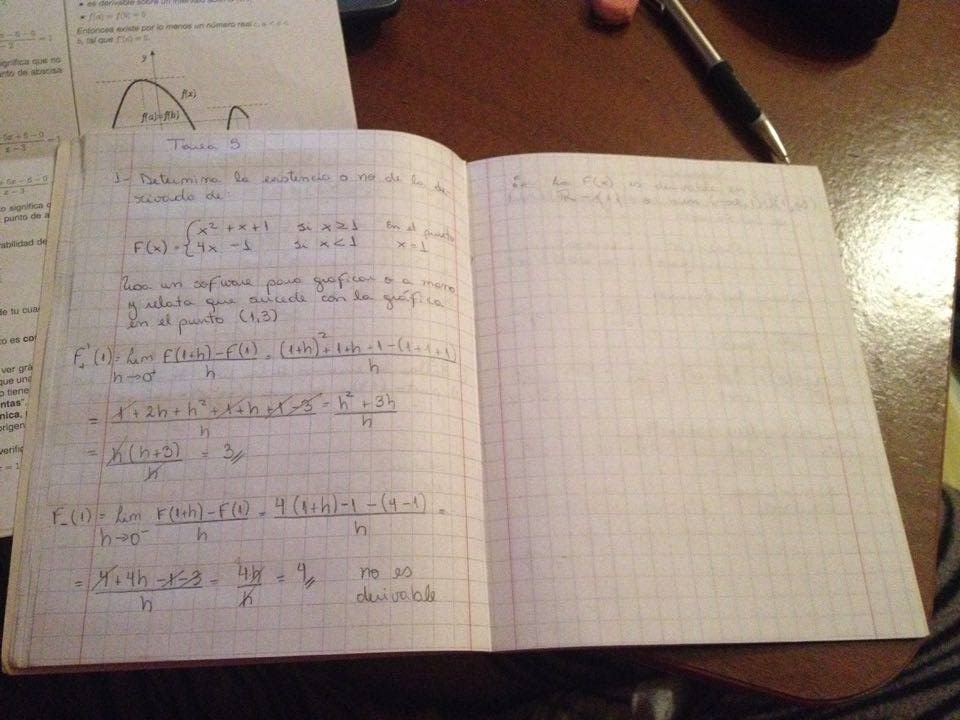 es derivable sobre un intervalo
f(a) = f(b) = 0
Entonces existe por lo menos un número real c, a < c <
b, tal que f'(c) = 0.
y
f(x)
f(a)=f(b)
ignifica que no
nto de abscisa
x - 3
punto de a
abilidad de
de tu cua
o es co
ver grá
que una
o tiene
ntas",
nica,
origen
verific
Tarea 5
1- Determina la existencia o no de la de
rivada de:
F(x) = { x² + x + 1 si x ≥ 1 en el punto
4x - 1 si x < 1 x = 1
Usa un sofware para graficar o a mano
y relata que sucede con la gráfica
en el punto (1,3)
F₊'(1) = Lim h→0⁺ F(1+h) - F(1) / h = (1+h)² + 1+h - 1 - (1+1+1) / h
= 1 + 2h + h² + 1 + h + 1 - 3 / h = h² + 3h / h
= h(h+3) / h = 3//
F₋(1) = Lim h→0⁻ F(1+h) - F(1) / h = 4(1+h) - 1 - (4-1) / h =
= 4 + 4h - 1 - 3 / h = 4h / h = 4// no es
derivable
F(x) es derivable en